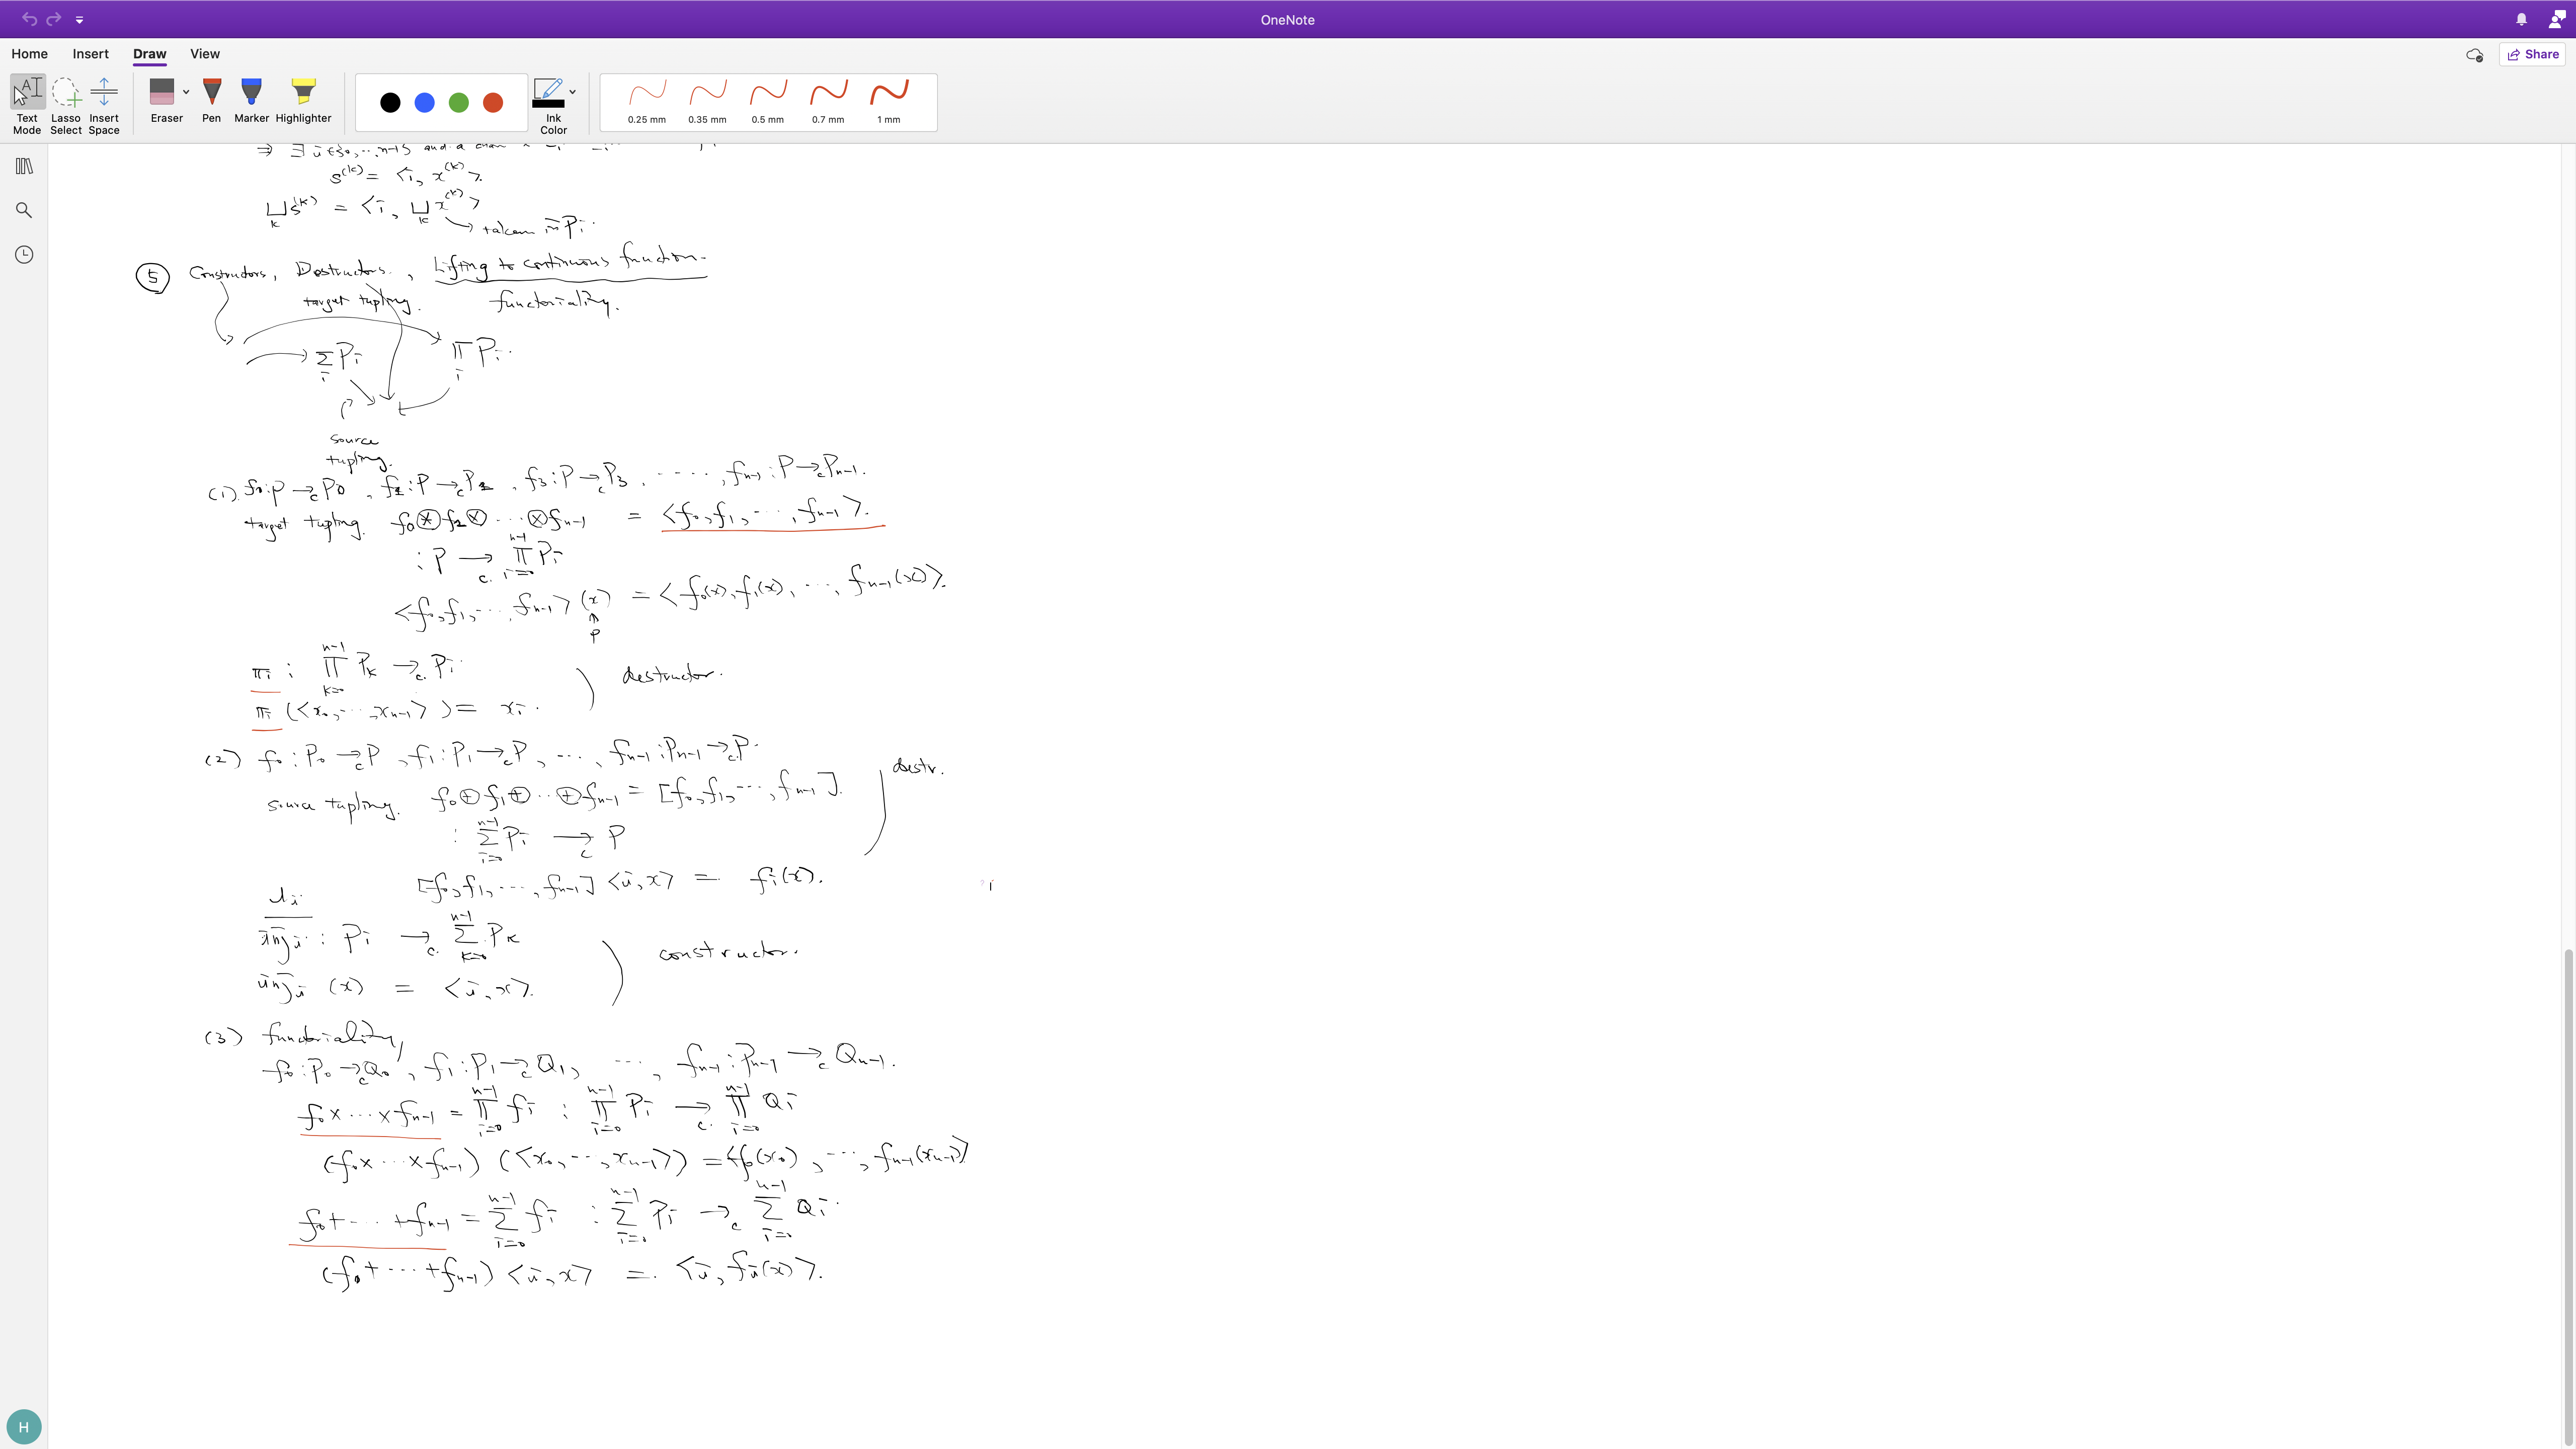 OneNote
Home Insert Draw View
Share
Text Mode
Lasso Select
Insert Space
Eraser
Pen
Marker
Highlighter
Ink Color
0.25 mm 0.35 mm 0.5 mm 0.7 mm 1 mm
⇒ ∃ i ∈ {0, ..., n-1} and a chain
s^(k) = <i, x^(k)>.
⊔_k s^(k) = <i, ⊔_k x^(k)>
→ taken in P_i.
⑤ Constructors, Destructors, Lifting to continuous function.
target tupling. functoriality.
Σ_i P_i ∏_i P_i.
source
tupling.
(1) f_0 : P →_c P_0, f_2 : P →_c P_2, f_3 : P →_c P_3, ....., f_{n-1} : P →_c P_{n-1}.
target tupling. f_0 ⊗ f_2 ⊗ ... ⊗ f_{n-1} = <f_0, f_1, ..., f_{n-1}>.
: P →_c. ∏_{i=0}^{n-1} P_i
<f_0, f_1, ..., f_{n-1}> (x) = <f_0(x), f_1(x), ..., f_{n-1}(x)>.
P
π_i : ∏_{k=0}^{n-1} P_k →_c. P_i
destructor.
π_i (<x_0, ..., x_{n-1}>) = x_i.
(2) f_0 : P_0 →_c P, f_1 : P_1 →_c P, ..., f_{n-1} : P_{n-1} →_c P.
destr.
source tupling. f_0 ⊕ f_1 ⊕ ... ⊕ f_{n-1} = [f_0, f_1, ..., f_{n-1}].
: Σ_{i=0}^{n-1} P_i →_c P
[f_0, f_1, ..., f_{n-1}] <i, x> = f_i(x).
inj_i : P_i →_c. Σ_{k=0}^{n-1} P_k
constructor.
inj_i (x) = <i, x>.
(3) functoriality
f_0 : P_0 →_c Q_0, f_1 : P_1 →_c Q_1, ..., f_{n-1} : P_{n-1} →_c Q_{n-1}.
f_0 × ... × f_{n-1} = ∏_{i=0}^{n-1} f_i : ∏_{i=0}^{n-1} P_i →_c. ∏_{i=0}^{n-1} Q_i
(f_0 × ... × f_{n-1}) (<x_0, ..., x_{n-1}>) = <f_0(x_0), ..., f_{n-1}(x_{n-1})>
f_0 + ... + f_{n-1} = Σ_{i=0}^{n-1} f_i : Σ_{i=0}^{n-1} P_i →_c Σ_{i=0}^{n-1} Q_i.
(f_0 + ... + f_{n-1}) <i, x> = <i, f_i(x)>.
H